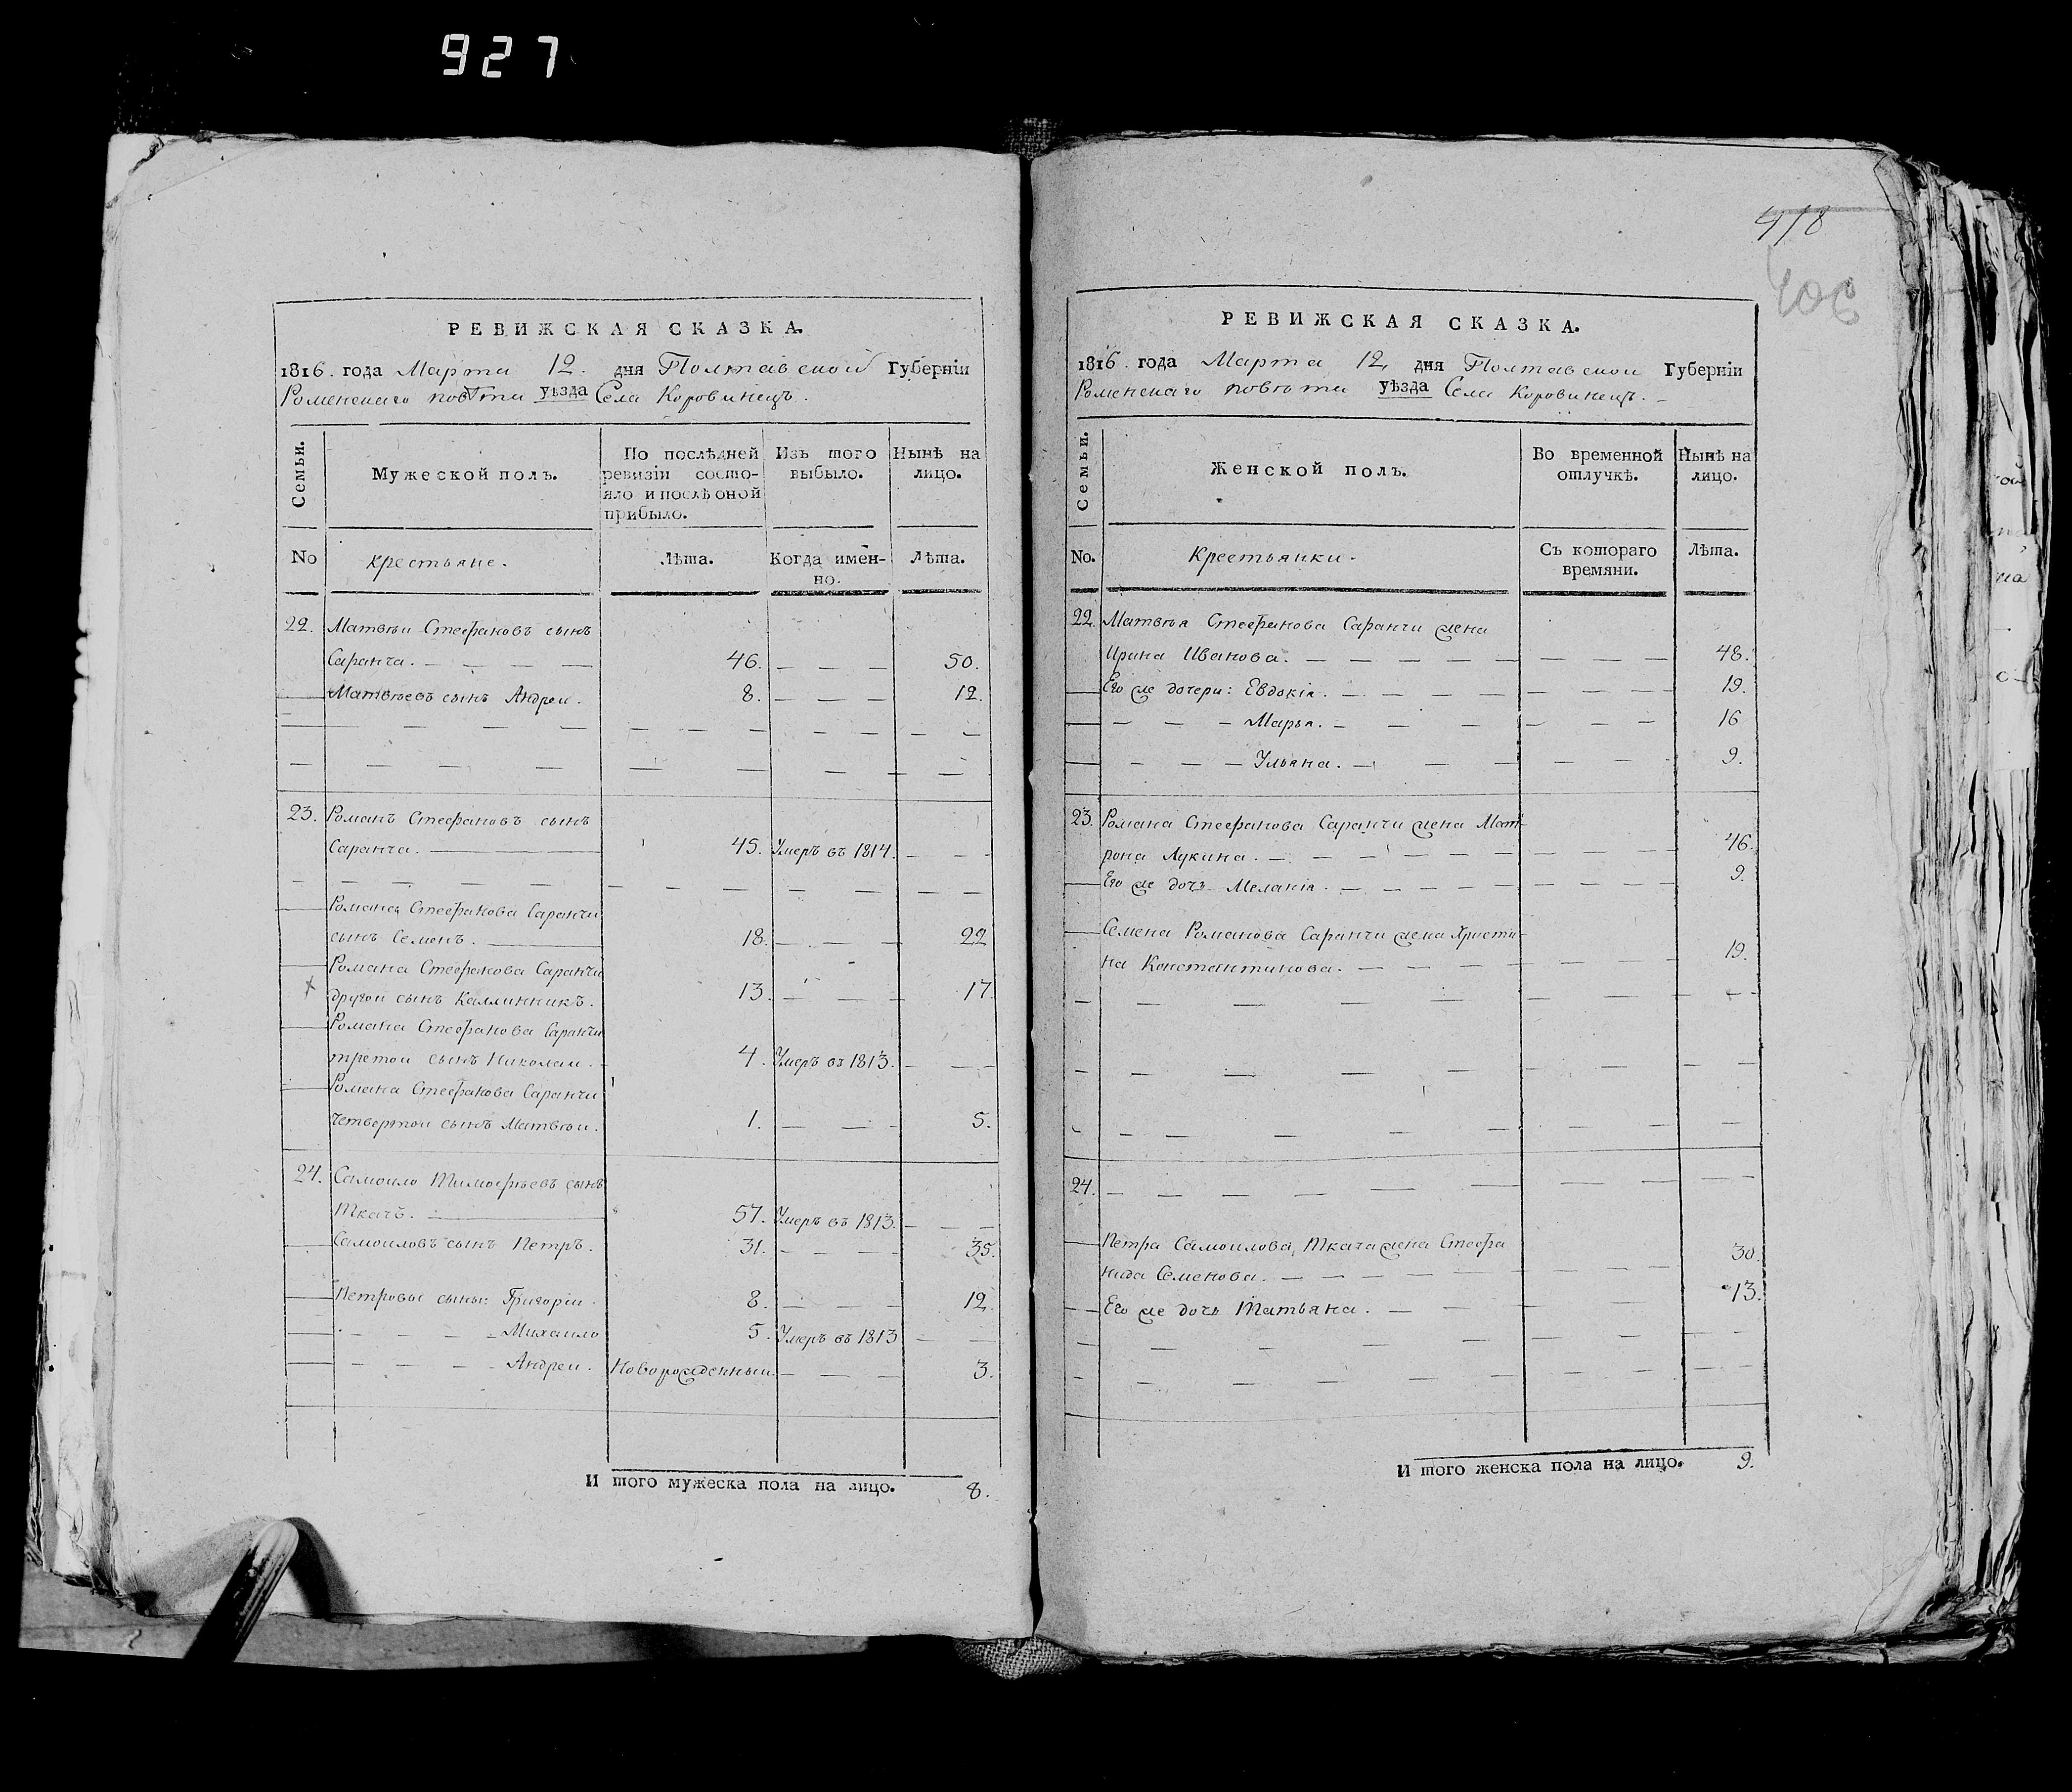 927
РЕВИЖСКАЯ СКАЗКА.
1816. года Марта 12. дня Полтавской Губернїи
Роменскаго повѣта уѣзда Села Коровинецъ.
Семьи.
Мужеской полъ.
По послѣдней ревизїи состо-
яло и послѣ оной
прибыло.
Изъ того
выбыло.
Нынѣ на
лицо.
No
крестьяне.
Лѣта.
Когда имен-
но.
Лѣта.
22. Матвѣи Стефановъ сынъ
Саранча. — — — — 46. — — — 50.
Матвѣевъ сынъ Андреи. 8. — — — 12.
23. Романъ Стефановъ сынъ
Саранча. — 45. Умеръ въ 1814. — — -
Романа Стефанова Саранчи
сынъ Семенъ. — 18. — — — 22
Романа Стефанова Саранчи
другои сынъ Каллинникъ. 13. — — — 17.
Романа Стефанова Саранчи
третои сынъ Николаи. 4. Умеръ въ 1813. — — -
Романа Стефанова Саранчи
четвертои сынъ Матвѣи. 1. — — - 5.
24. Самоило Тимофѣевъ сынъ
Ткачъ. — 57. Умеръ въ 1813. — — —
Самоиловъ сынъ Петръ. 31. — — — — 35.
Петровы сыны: Григорїи. 8. — — — 12.
— — — Михаило 5. Умеръ въ 1813 — —
— — — Андреи. Новорожденныи. — — — 3.
И того мужеска пола на лицо. 8.
418
106
РЕВИЖСКАЯ СКАЗКА.
1816. года Марта 12, дня Полтавскои Губернїи
Роменскаго повѣта уѣзда Села Коровинецъ. -
Семьи.
Женской полъ.
Во временной
отлучкѣ.
Нынѣ на
лицо.
No.
Крестьянки.
Съ котораго
времяни.
Лѣта.
22. Матвѣя Стефанова Саранчи жена
Ирина Иванова. — — — — — — — — 48.
Его же дочери: Евдокїя. — — — — — — — 19.
— — — Марья. — — — — — — 16
— — — Ульяна. — — — — — — 9.
23. Романа Стефанова Саранчи жена Мат-
рона Лукина. — — — — — — — — — 46.
Его же дочь Меланїя. — — — — — — — — 9.
Семена Романова Саранчи жена Христи-
на Константинова. — — — — — — — 19.
24. — — — — — — — — — — — —
Петра Самоилова Ткача жена Стефа
нида Семенова. — — — — — — — — 30
Его же дочь Татьяна. — — — — — 13.
И того женска пола на лицо. 9.